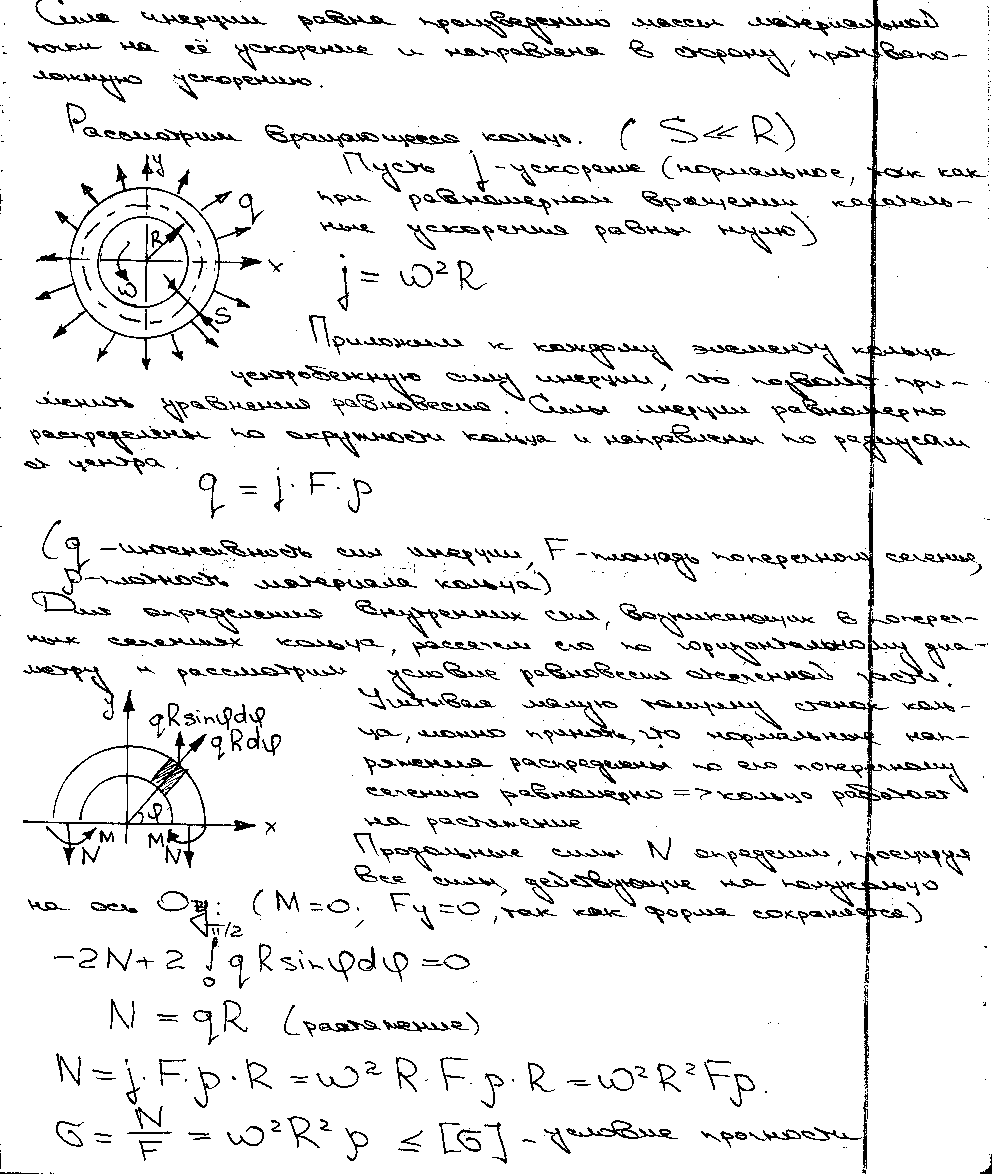 Сила инерции равна произведению массы материальной
точки на её ускорение и направлена в сторону, противопо-
ложную ускорению.
Рассмотрим вращающееся кольцо. ( S ≪ R )
y
q
R
x
ω
S
Пусть j - ускорение (нормальное, так как
при равномерном вращении касатель-
ные ускорения равны нулю)
j = ω²R
Приложим к каждому элементу кольца
центробежную силу инерции, что позволит при-
менить уравнения равновесия. Силы инерции равномерно
распределены по окружности кольца и направлены по радиусам
от центра.
q = j · F · ρ
(q - интенсивность сил инерции, F - площадь поперечного сечения,
ρ - плотность материала кольца)
Для определения внутренних сил, возникающих в попереч-
ных сечениях кольца, рассечем его по горизонтальному диа-
метру и рассмотрим условие равновесия отсеченной части.
y
qRsinφdφ
qRdφ
φ
x
M M
N N
Учитывая малую толщину стенок коль-
ца, можно принять, что нормальные нап-
ряжения распределены по его поперечному
сечению равномерно => кольцо работает
на растяжение
Продольные силы N определим, проецируя
все силы, действующие на полукольцо
на ось Oy: (M=0; Fy=0, так как форма сохраняется)
-2N + 2 ∫₀^π/2 qRsinφdφ = 0
N = qR (растяжение)
N = j · F · ρ · R = ω² R · F · ρ · R = ω² R² Fρ.
σ = N/F = ω² R² ρ ≤ [σ] - условие прочности